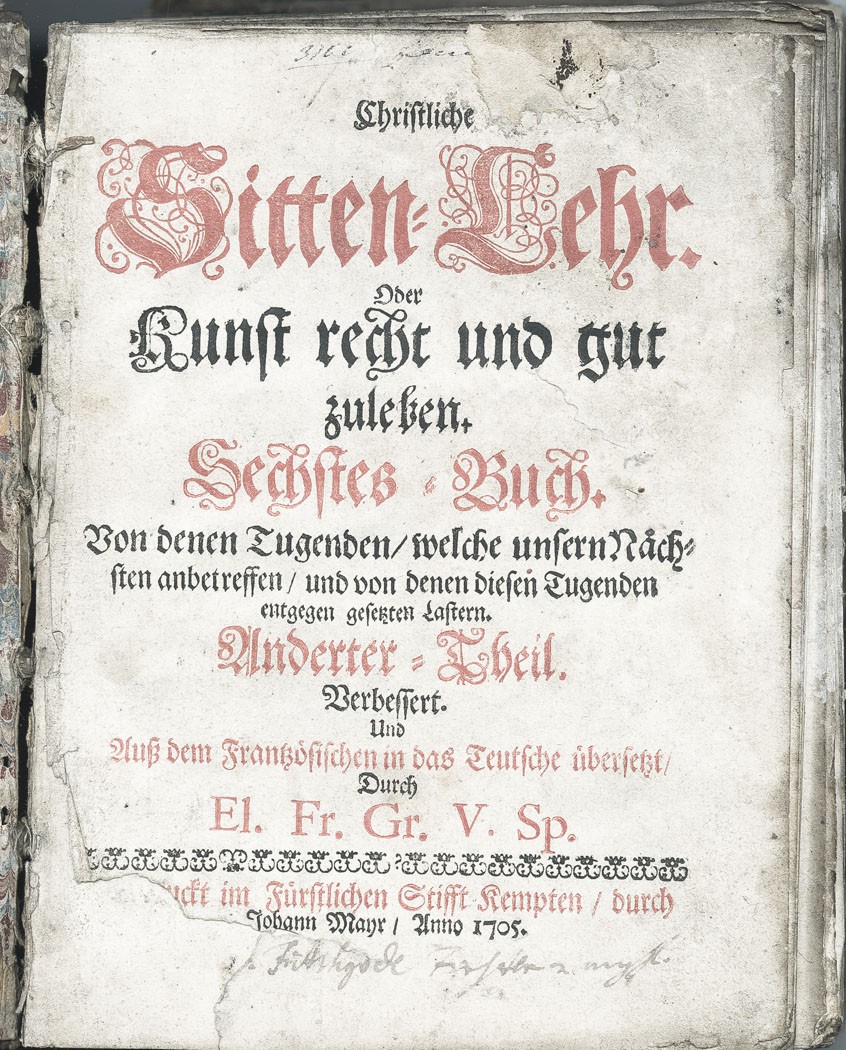 Christliche
Sitten-Lehr.
Oder
Kunst recht und gut
zuleben.
Sechstes-Buch.
Von denen Tugenden/ welche unsern Näch-
sten anbetreffen/ und von denen diesen Tugenden
entgegen gesetzten Lastern.
Anderter-Theil.
Verbessert.
Und
Auß dem Frantzösischen in das Teutsche übersetzt/
Durch
El. Fr. Gr. V. Sp.
uckt im Fürstlichen Stifft Kempten / durch
Johann Mayr / Anno 1705.